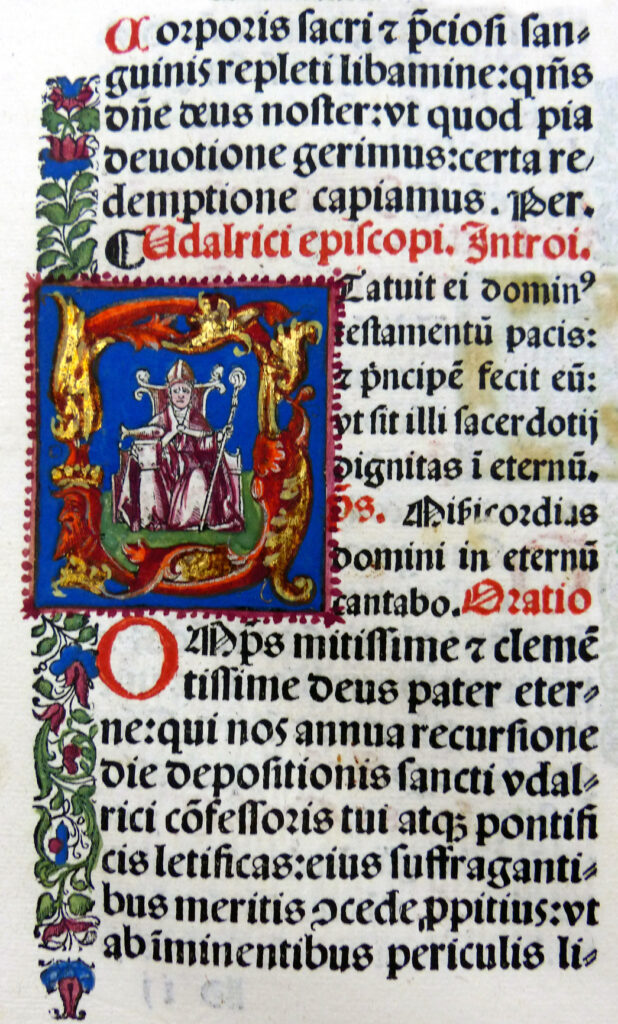 Corporis sacri ⁊ p̄ciosi san⸗
guinis repleti libamine:qm̄s
dn̄e deus noster:vt quod pia
deuotione gerimus:certa re⸗
demptione capiamus. Per.
Udalrici episcopi. Introi.
Tatuit ei dominꝰ
testamentū pacis:
⁊ p̄ncipē fecit eū:
vt sit illi sacerdotij
dignitas ī eternū.
p̄s. Misericordias
domini in eternū
cantabo. Oratio
OMp̄s mitissime ⁊ clemē
tissime deus pater eter⸗
ne:qui nos annua recursione
die depositionis sancti vdal⸗
rici cōfessoris tui atqꝫ pontifi
cis letificas:eius suffraganti⸗
bus meritis ↄcede ꝓpitius:vt
ab īminentibus periculis li⸗